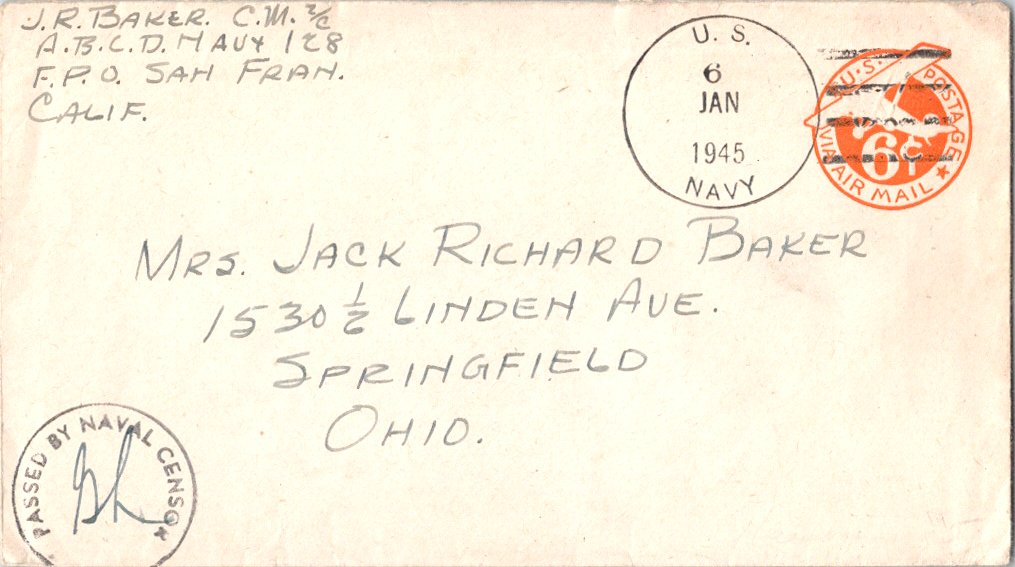 J.R. BAKER. C.M. 2/C
A.B.C.D. NAVY 128
F.P.O. SAN FRAN.
CALIF.
U. S.
6
JAN
1945
NAVY
U.S. POSTAGE
6¢
VIA AIR MAIL
MRS. JACK RICHARD BAKER
1530 1/2 LINDEN AVE.
SPRINGFIELD
OHIO.
PASSED BY NAVAL CENSOR